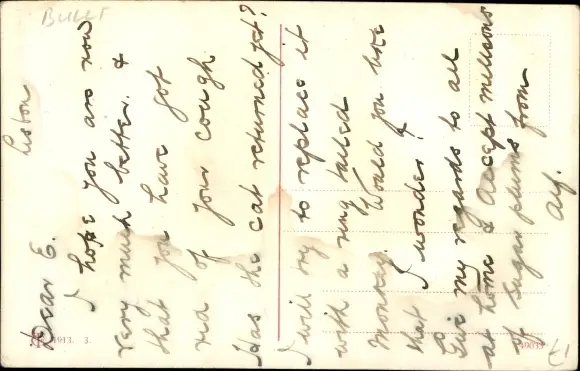 BURTT
Lisbon
Dear E.
I hope you are now
very much better. &
that you have got
rid of your cough
Has the cat returned yet?
I will try to replace it
with a ring tailed
Monkey. Would you like
that I wonder!
Give my regards to all
at home & accept millions
of sugar plums from
1913. 3.